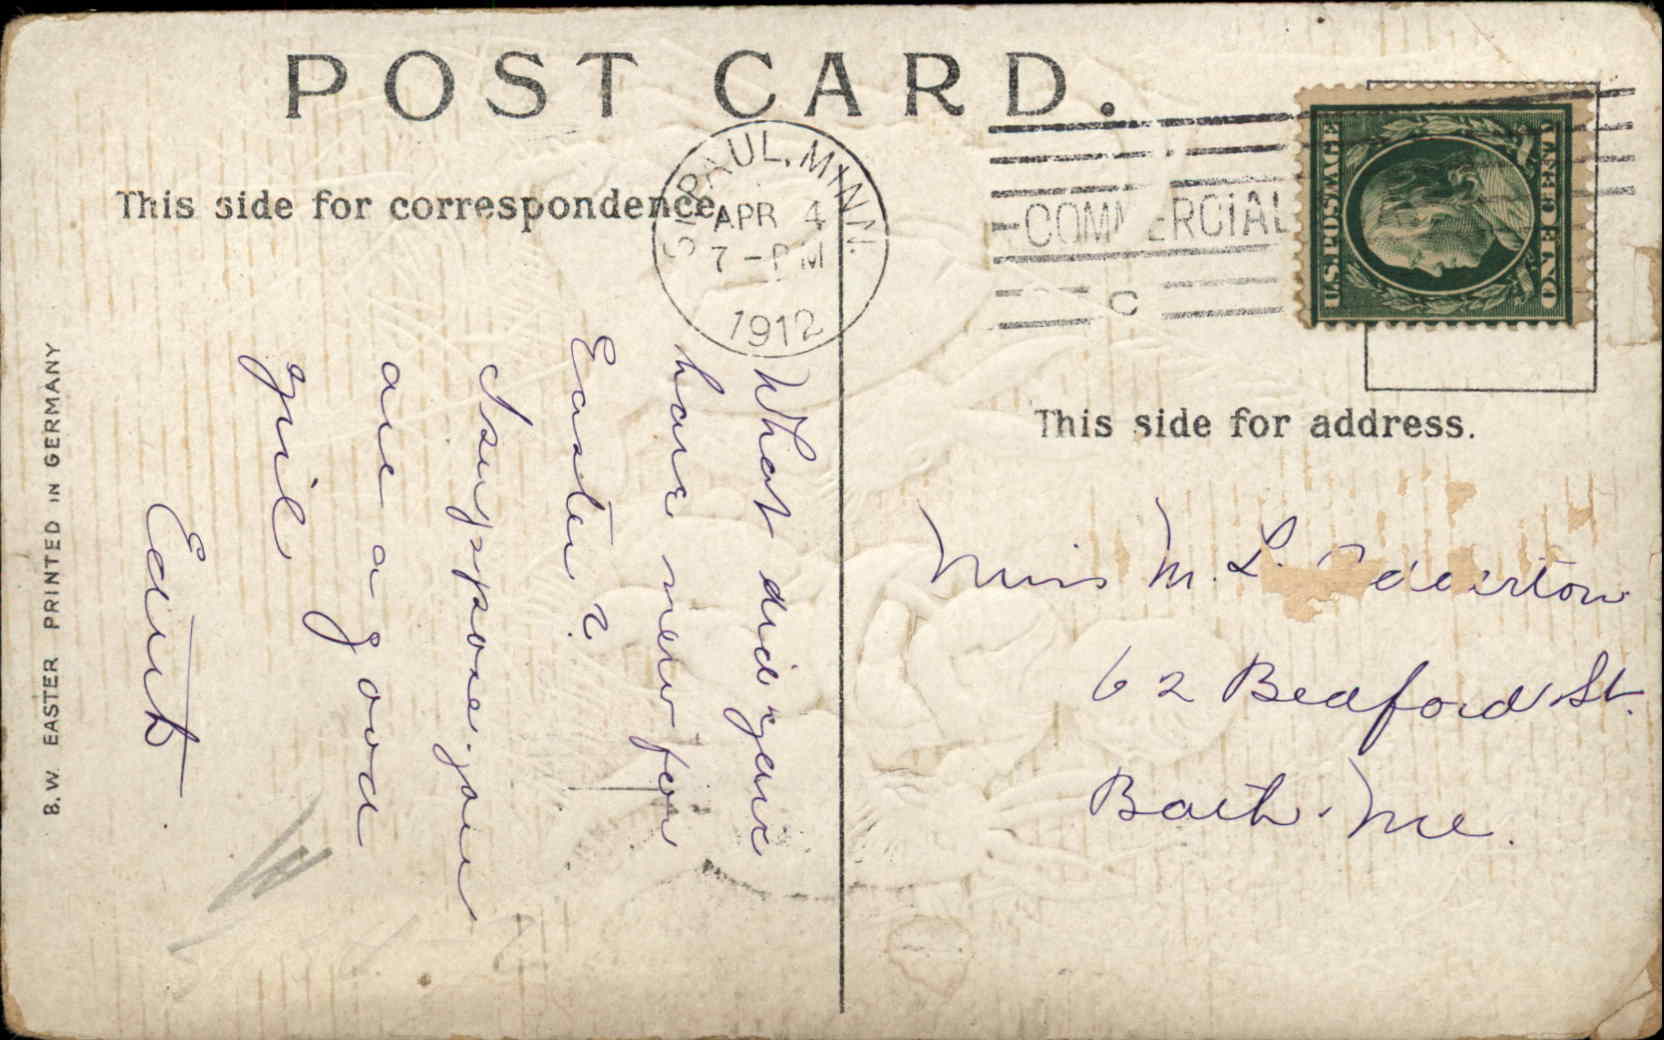 POST CARD.
This side for correspondence
ST. PAUL, MINN.
APR 4
7-PM
1912
COMMERCIAL
C
U.S. POSTAGE
ONE CENT
This side for address.
What did you
have new for
Easter?
I suppose you
are a good
girl
Edith
Miss M. L.
62 Bedford St.
Bath. Me.
B.W. EASTER PRINTED IN GERMANY